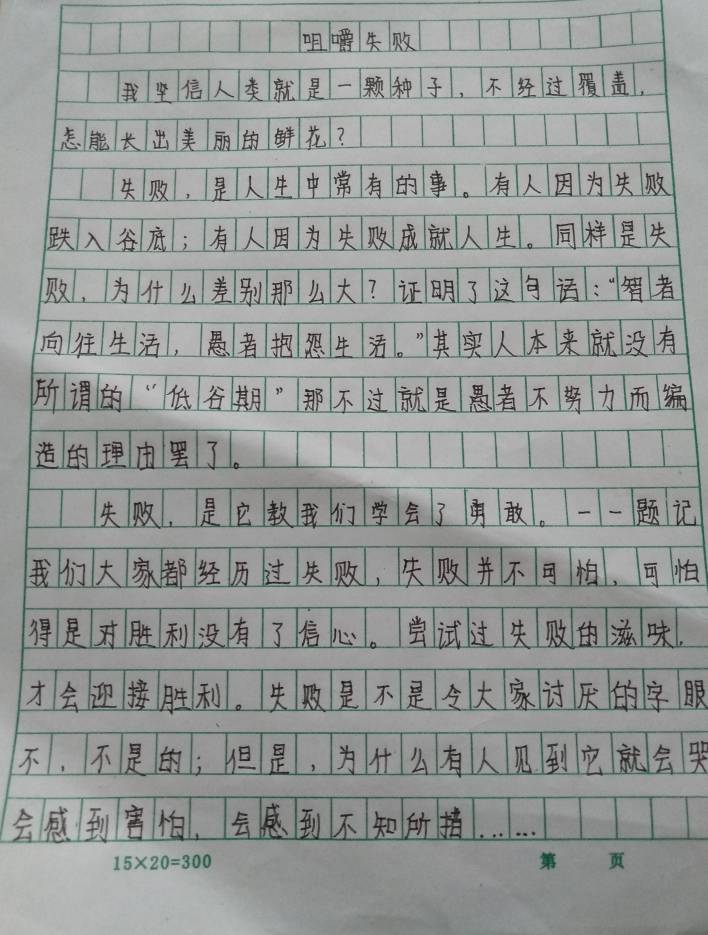 咀嚼失败
我坚信人类就是一颗种子，不经过覆盖，
怎能长出美丽的鲜花？
失败，是人生中常有的事。有人因为失败
跌入谷底；有人因为失败成就人生。同样是失
败，为什么差别那么大？证明了这句话：“智者
向往生活，愚者抱怨生活。”其实人本来就没有
所谓的“低谷期”那不过就是愚者不努力而编
造的理由罢了。
失败，是它教我们学会了勇敢。——题记
我们大家都经历过失败，失败并不可怕，可怕
得是对胜利没有了信心。尝试过失败的滋味，
才会迎接胜利。失败是不是令大家讨厌的字眼
不，不是的；但是，为什么有人见到它就会哭
会感到害怕，会感到不知所措……
15×20=300
第 页